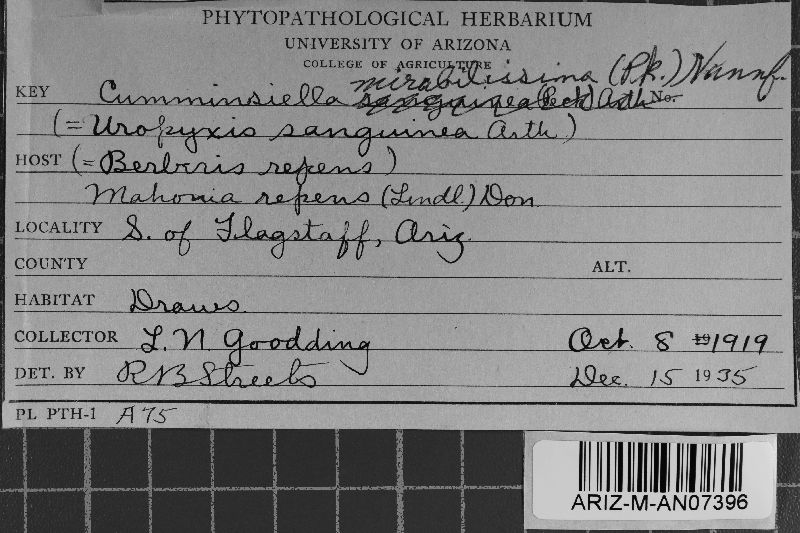 PHYTOPATHOLOGICAL HERBARIUM
UNIVERSITY OF ARIZONA
COLLEGE OF AGRICULTURE
mirabilissima (Pk.) Nannf.
KEY Cumminsiella sanguinea (Peck) Arth No.
(= Uropyxis sanguinea Arth.)
HOST (= Berberis repens)
Mahonia repens (Lindl.) Don
LOCALITY S. of Flagstaff, Ariz.
COUNTY ALT.
HABITAT Draws
COLLECTOR L. N. Goodding Oct. 8 19 1919
DET. BY R B Streets Dec. 15 1935
PL PTH-1 A75
ARIZ-M-AN07396